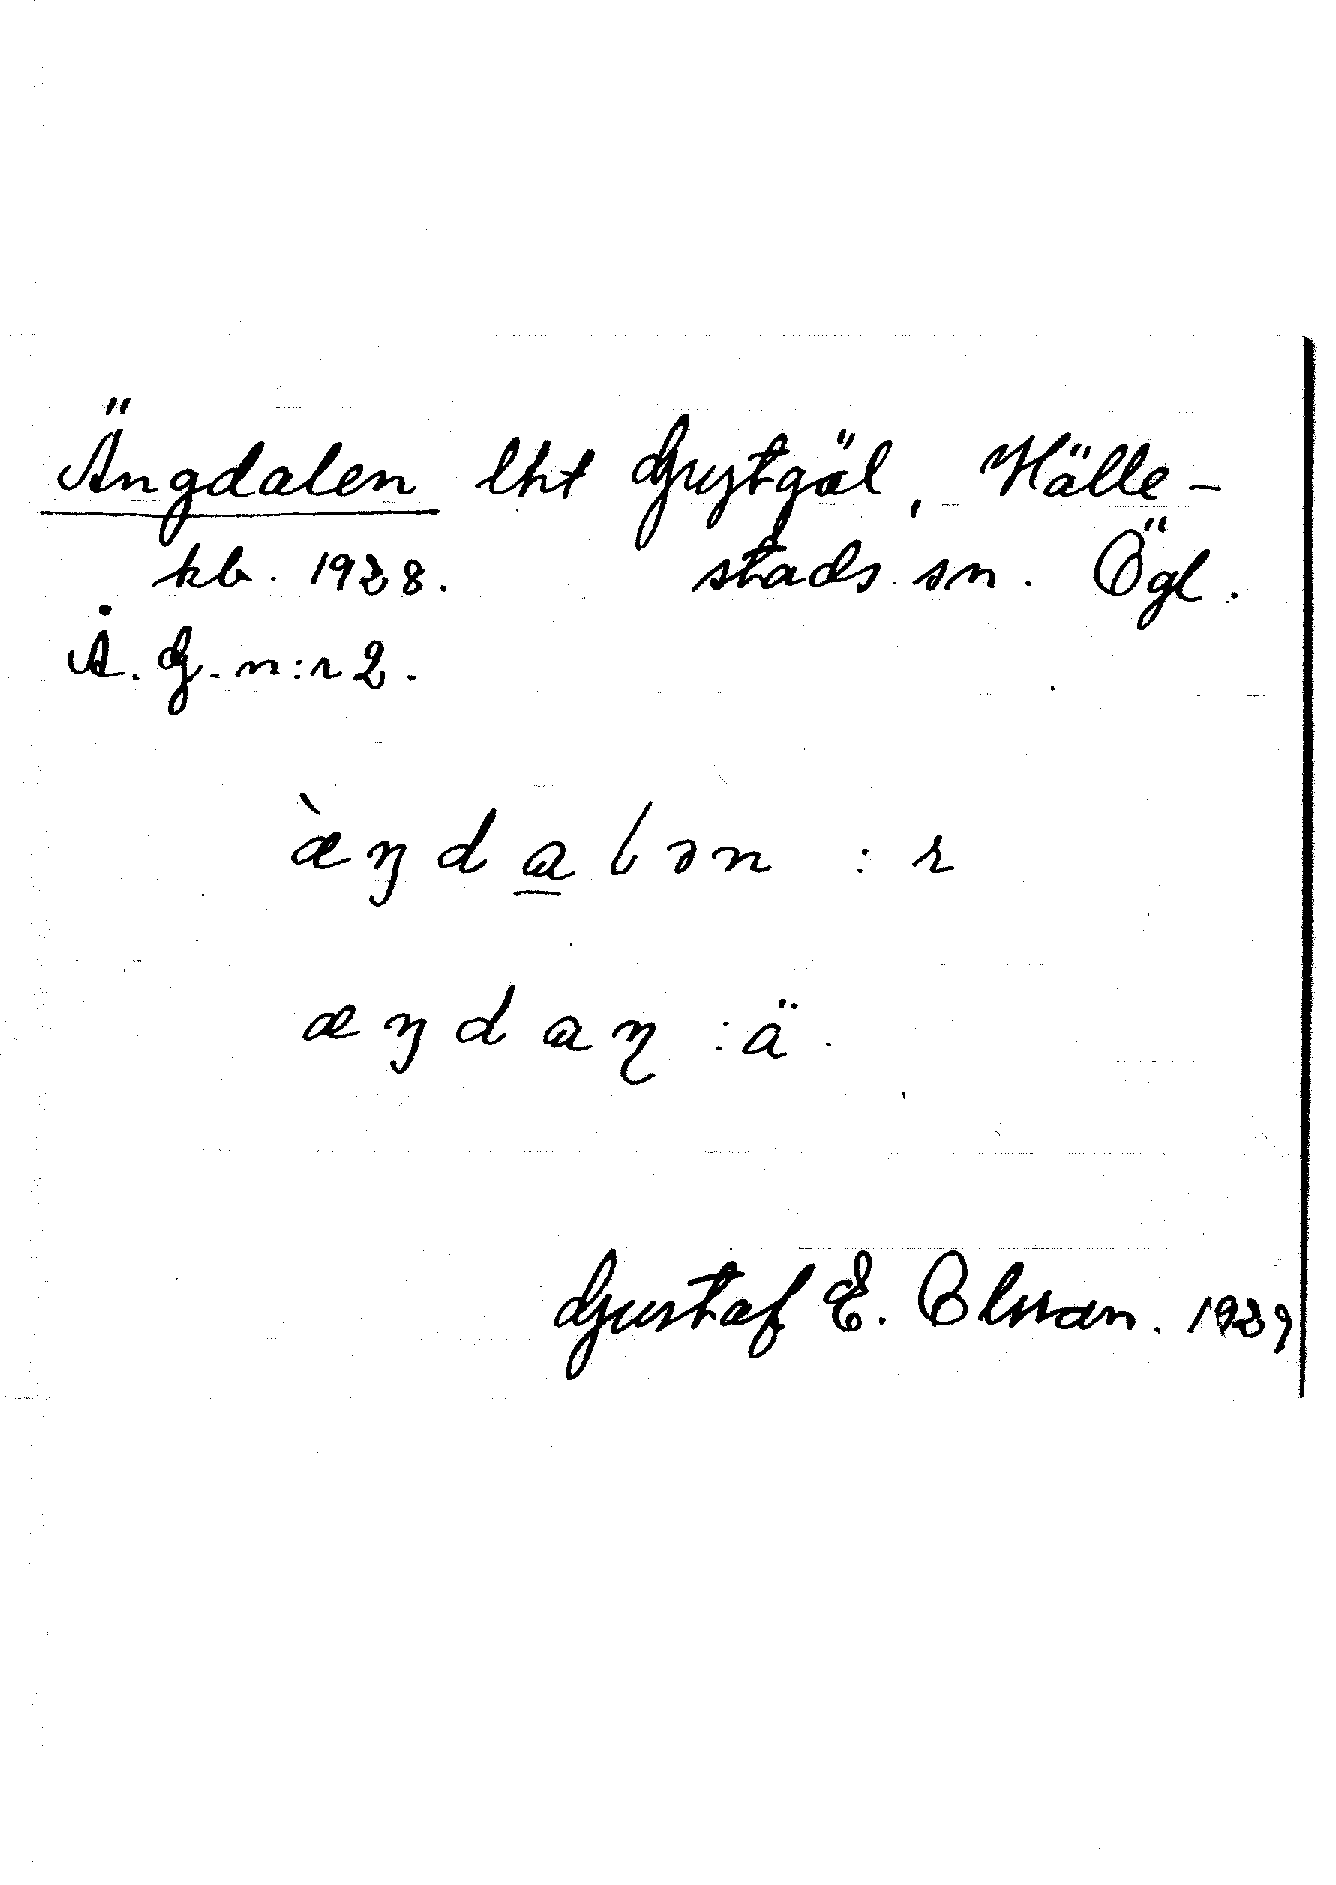 Ängdalen lht Grytgöl, Hälle-
kb. 1938. stads sn. Ögl.
Å. G. n:r 2.
æ̀ŋdalən : r
æŋdaṇ : ä.
Gustaf E. Olsson. 1939